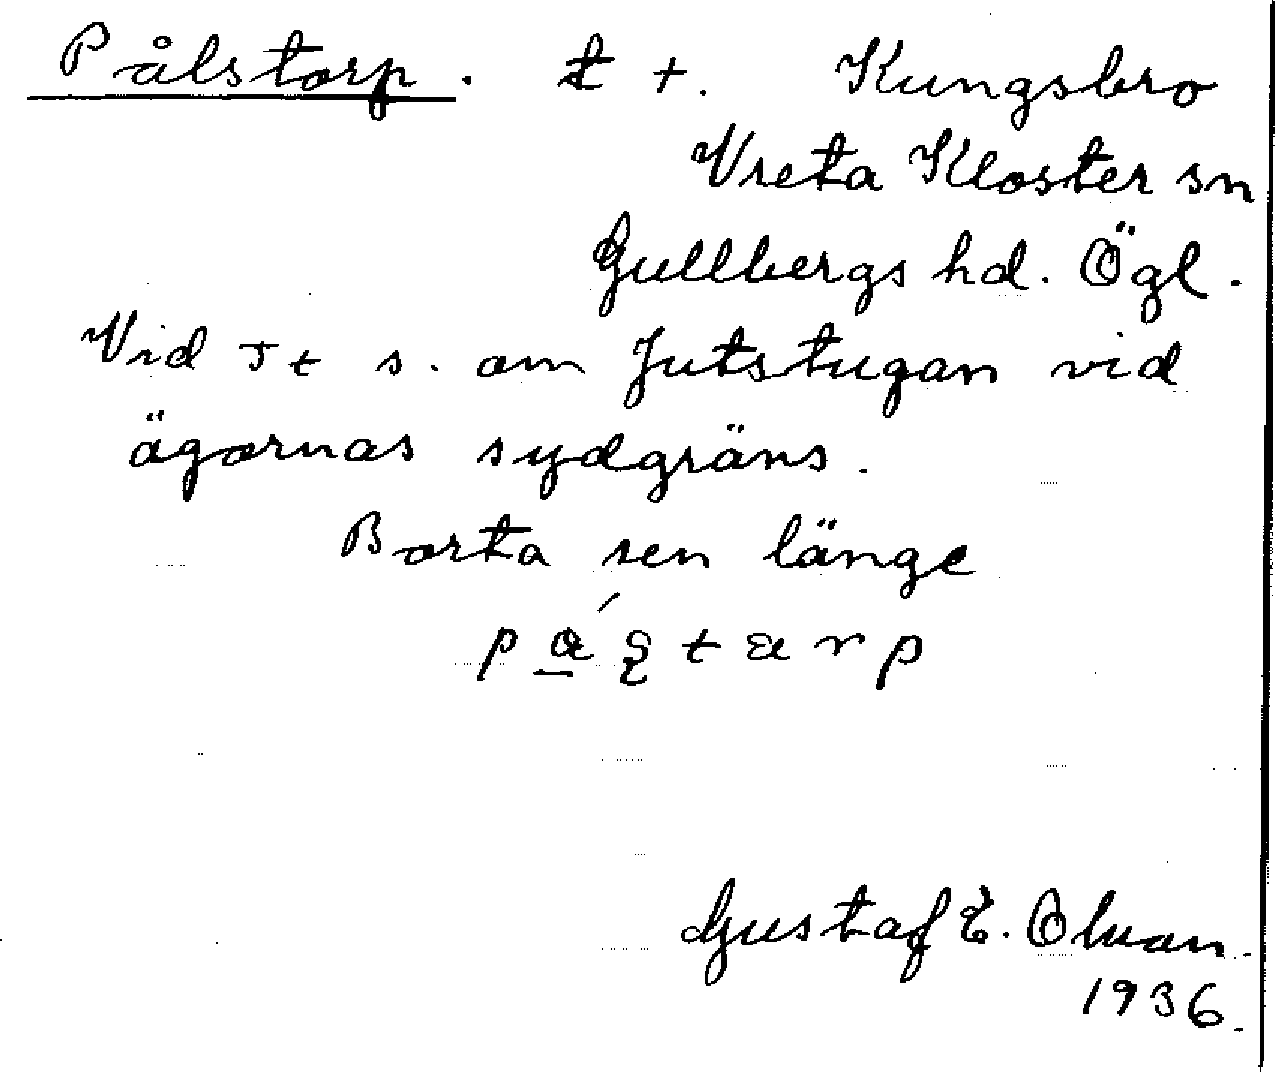 Pålstorp. t +. Kungsbro
Vreta Kloster sn
Gullbergs hd. Ögl.
Vid J+ s. om Jutstugan vid
ägornas sydgräns.
Borta sen länge
Gustaf E. Olvan.
1936.